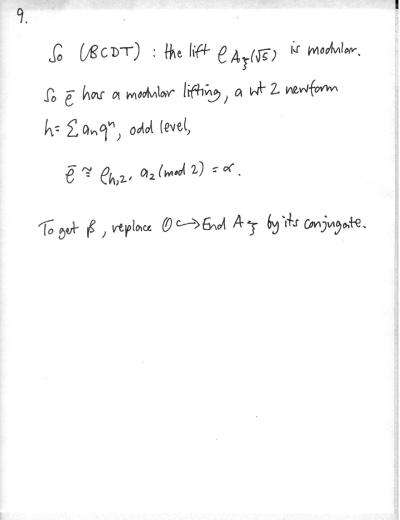 9.
So (BCDT) : the lift ρ_{A_ξ(√5)} is modular.
So ρ̄ has a modular lifting, a wt 2 newform
h = Σ aₙqⁿ, odd level,
ρ̄ ≅ ρ_{h,2}, a₂ (mod 2) = α.
To get β, replace O ↪ End A_ξ by its conjugate.